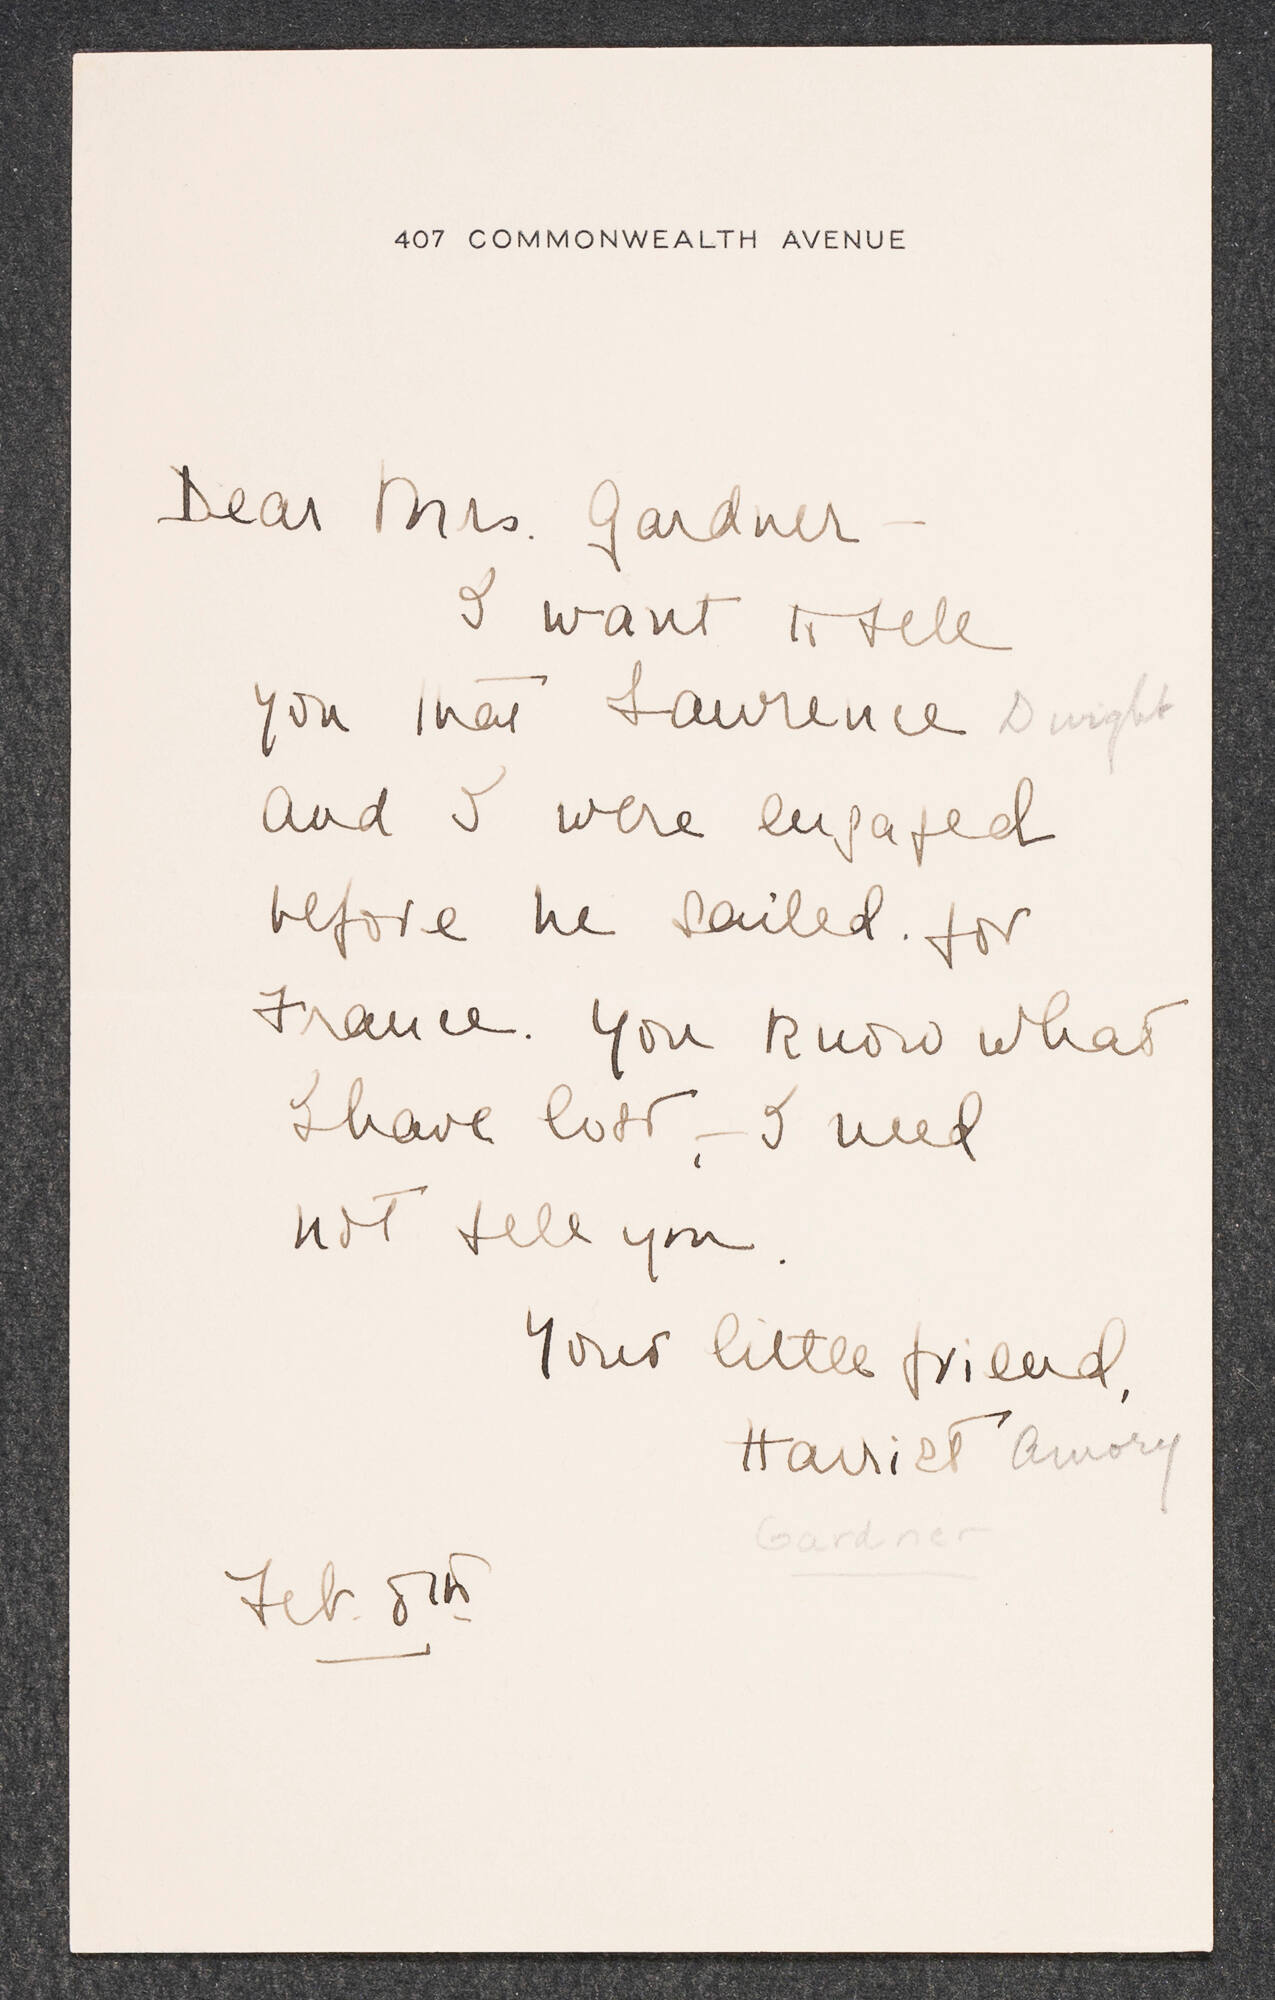 407 COMMONWEALTH AVENUE
Dear Mrs. Gardner –
I want to tell
you that Lawrence Dwight
and I were engaged
before he sailed. for
France. You know what
I have lost, – I need
not tell you.
Your little friend,
Harriet Amory
Gardner
Feb. 8th